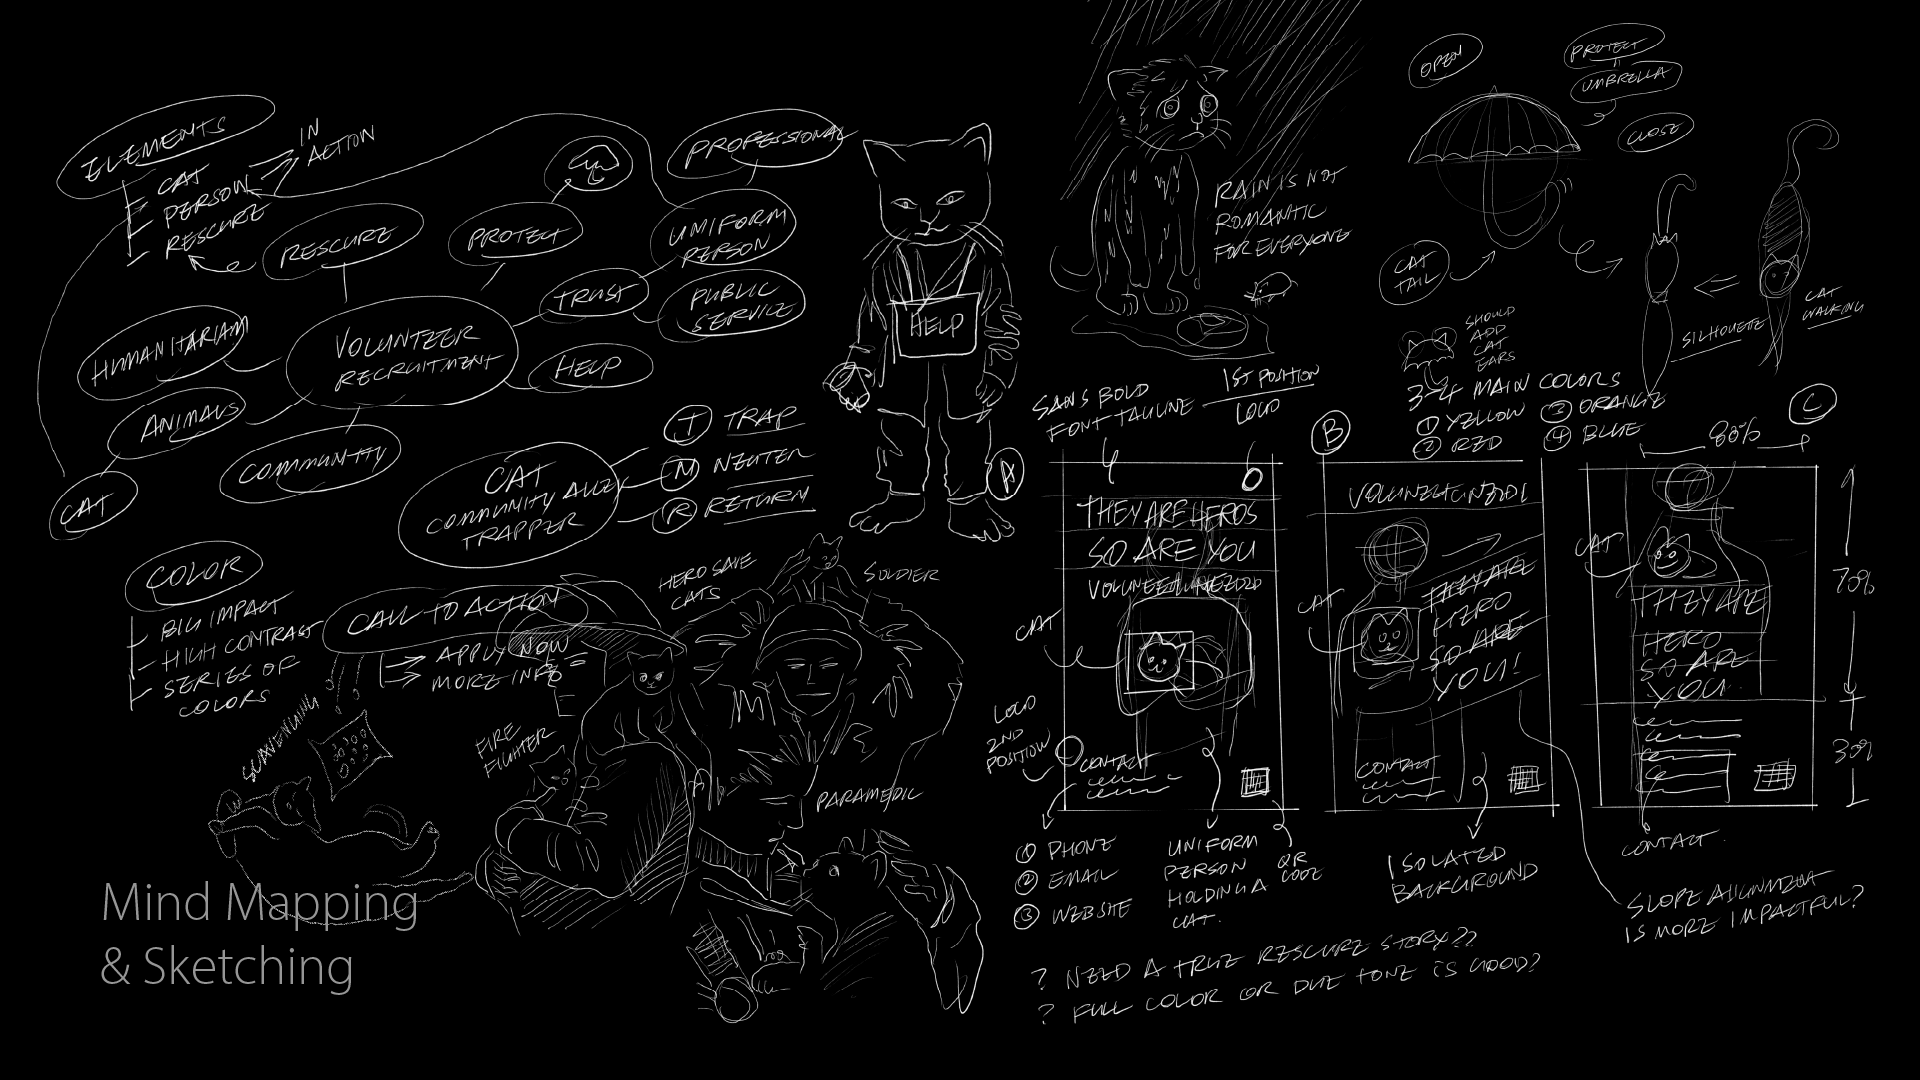 ELEMENTS
CAT
PERSON
RESCURE
IN
ACTION
RESCURE
PROTECT
PROFESSIONAL
UNIFORM
PERSON
TRUST
PUBLIC
SERVICE
HUMANITARIAM
VOLUNTEER
RECRUITMENT
HELP
ANIMALS
COMMUNITY
CAT
CAT
COMMUNITY ALLEY
TRAPPER
T TRAP
N NEUTER
R RETURN
HELP
COLOR
BIG IMPACT
HIGH CONTRAST
SERIES OF
COLORS
CALL TO ACTION
APPLY NOW
MORE INFO
SCAVENGING
HERO SAVE
CATS
SOLDIER
FIRE
FIGHTER
PARAMEDIC
RAIN IS NOT
ROMANTIC
FOR EVERYONE
OPEN
PROTECT
UMBRELLA
CLOSE
CAT
TAIL
SHOULD
ADD
CAT
EARS
SILHOUETTE
CAT
WALKING
SANS BOLD
FONT TAGLINE
1ST POSITION
LOGO
3-4 MAIN COLORS
1 YELLOW
2 RED
3 ORANGE
4 BLUE
A
THEY ARE HEROS
SO ARE YOU
CAT
LOGO
2ND
POSITION
CONTACT
1 PHONE
2 EMAIL
3 WEBSITE
UNIFORM
PERSON
HOLDING A
CAT.
QR
CODE
B
CAT
THEY ARE
HERO
SO ARE
YOU!
CONTACT
ISOLATED
BACKGROUND
C
80%
CAT
THEY ARE
HERO
SO ARE
YOU
70%
30%
CONTACT
SLOPE ALIGNMENT
IS MORE IMPACTFUL?
? NEED A TRUE RESCURE STORY??
? FULL COLOR OR DUE TONE IS GOOD?
Mind Mapping
& Sketching